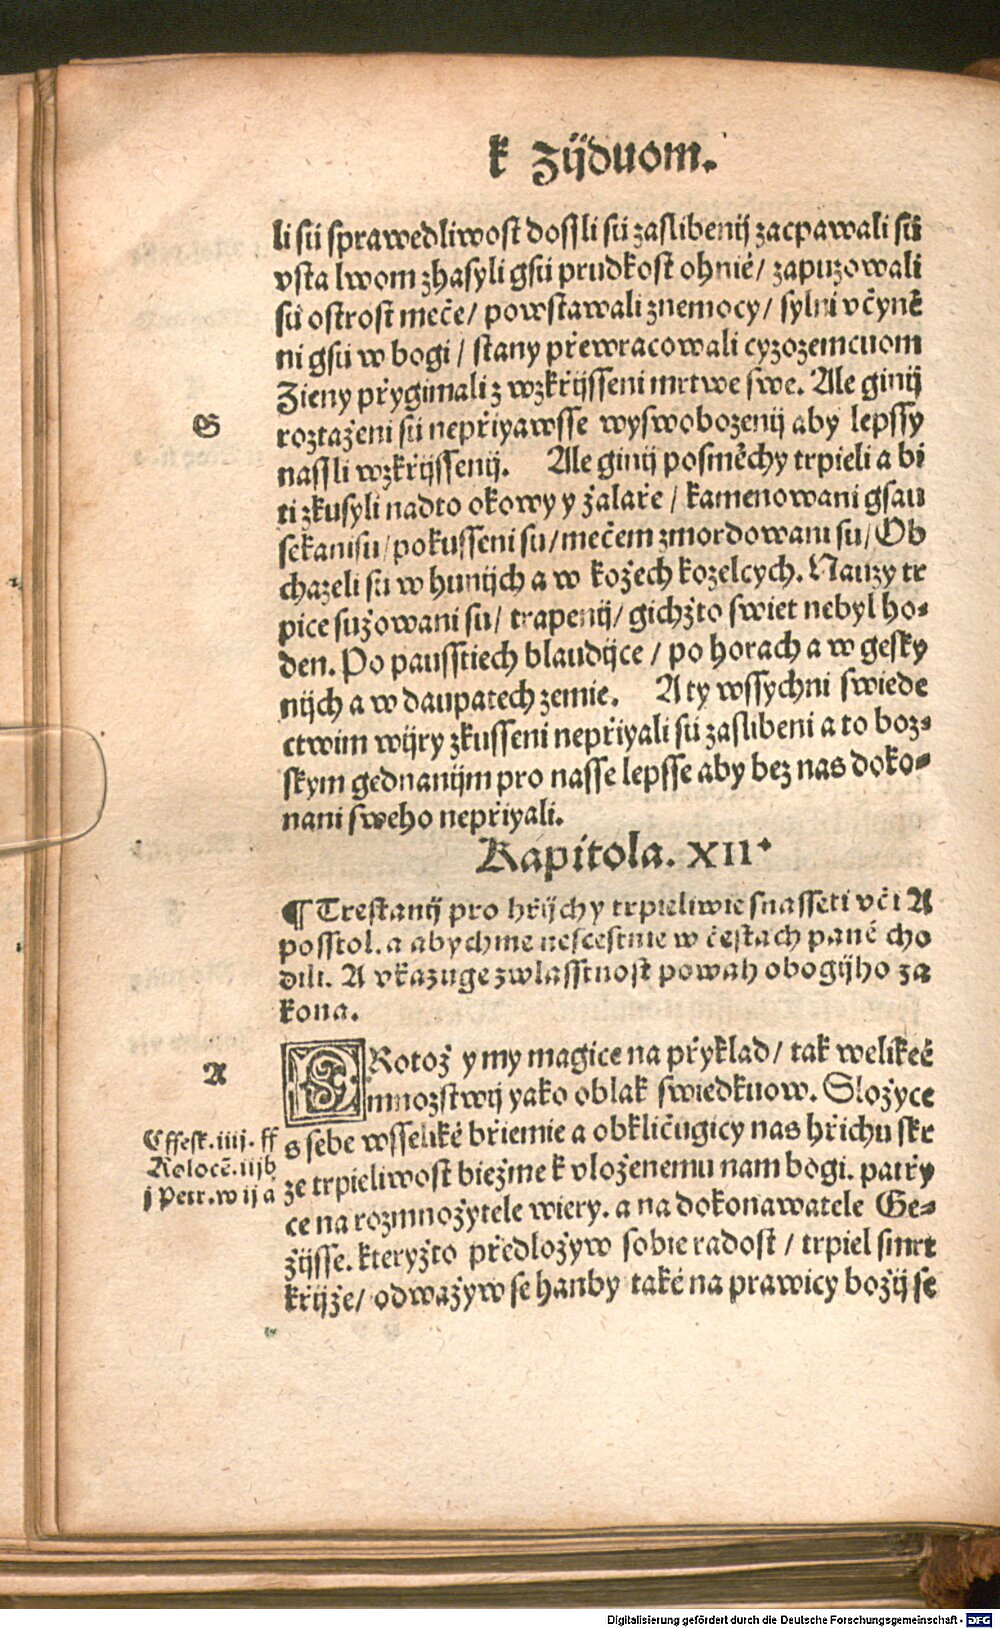 k Zijduom.
li sú sprawedliwost dossli sú zaslibenij zacpawali sú
vsta lwom zhasyli gsú prudkost ohnié/ zapuzowali
sú ostrost meče/ powstawali znemocy/ sylni včyně
ni gsú w bogi/ stany přewracowali cyzozemcuom
Zieny přygimali z wzkřijsseni mrtwe swe. Ale ginij
G
roztaženi sú nepřiyawsse wyswobozenij aby lepssy
nassli wzkřijssenij. Ale ginij posměchy trpieli a bi
ti zkusyli nadto okowy y žalaře/ kamenowani gsau
sekani su/ pokusseni su/ mečem zmordowani su/ Ob
chazeli sú w hunijch a w kožech kozelcych. Nauzy tr
pice sužowani su/ trapenij/ gichžto swiet nebyl ho-
den. Po pausstiech blaudijce/ po horach a w gesky
nijch a w daupatech zemie. A ty wssychni swiede
ctwim wijry zkusseni nepřiyali sú zaslibeni a to boz-
skym gednanijm pro nasse lepsse aby bez nas doko-
nani sweho nepřiyali.
Kapitola. XII
¶ Trestanij pro hřijchy trpieliwie snasseti včí A
posstol. a abychme nescestnie w čestach paně cho
dili. A vkazuge zwlasstnost powah obogijho za
kona.
A
PRotož y my magice na přyklad/ tak welikeé
mnozstwij yako oblak swiedkuow. Složyce
Effesk. iiij. ff
s sebe wsseliké břiemie a obkličugicy nas hřichu skr
Kolocě. iijb
ze trpieliwost biežme k vloženemu nam bogi. patřy
j Petr. w ij a
ce na rozmnožytele wiery. a na dokonawatele Ge-
žijsse. kteryžto předložyw sobie radost/ trpiel smrt
křijže/ odwažyw se hanby také na prawicy božij se
Digitalisierung gefördert durch die Deutsche Forschungsgemeinschaft - DFG